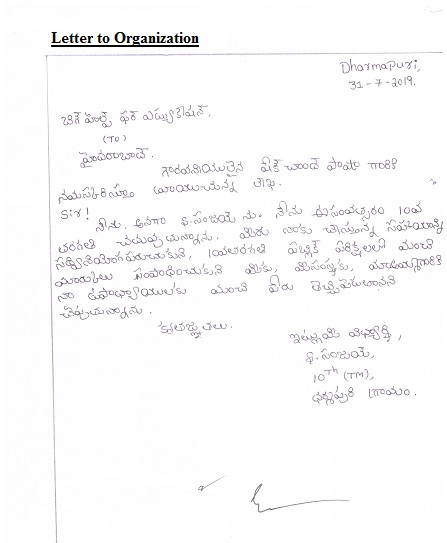 Letter to Organization
Dharmapuri,
31-7-2019.
బిగ్ హెల్ప్ ఫర్ ఎడ్యుకేషన్,
(TO)
హైదరాబాద్.
గౌరవనీయులైన షేక్ చాంద్ పాషా గారికి
నమస్కరిస్తూ వ్రాయుచున్న లేఖ.
Sir!
నేను, అనగా ఫి.సంజయ్ ను. నేను ఈ సంవత్సరం 10వ
తరగతి చదువుచున్నాను. మీరు నాకు చేస్తున్న సహాయాన్ని
సద్వినియోగపరుచుకుని, 10వతరగతి పబ్లిక్ పరీక్షలలో మంచి
మార్కులు సంపాదించుకుని మీకు, మీసంస్థకు,
నా ఉపాధ్యాయులకు మంచి పేరు తెచ్చిపెడతానని
చెప్పుచున్నాను.
కృతజ్ఞతలు.
ఇట్లు మీ విద్యార్థి,
సంజయ్,
10th (TM),
ధర్మపురి గ్రామం.